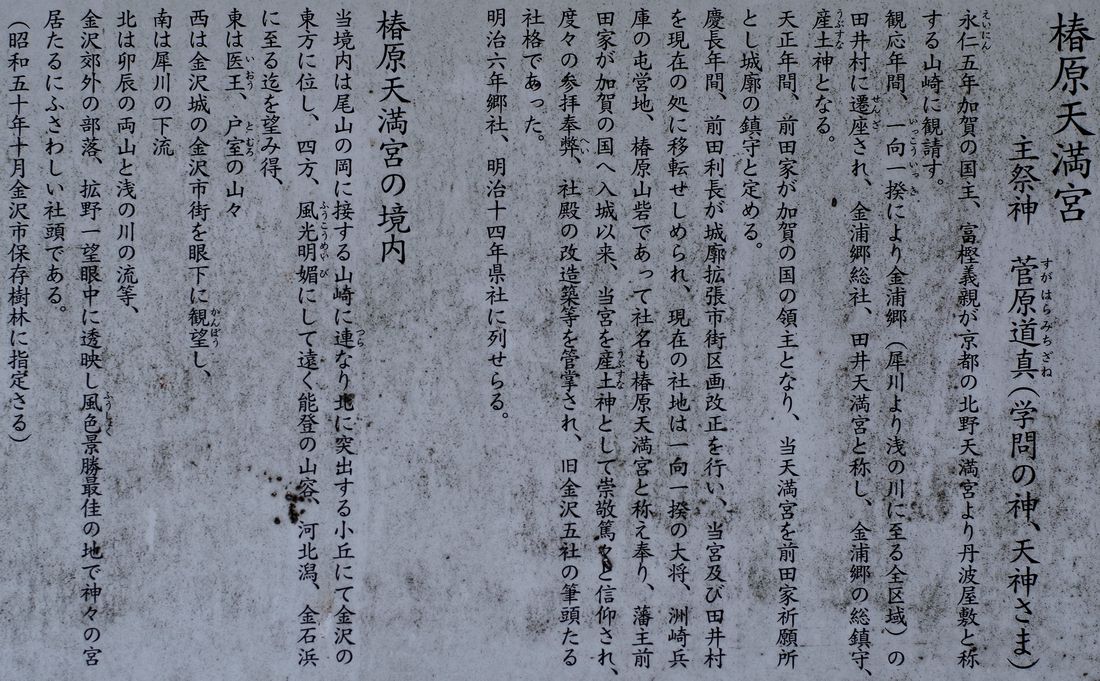 椿原天満宮
主祭神 菅原道真(学問の神、天神さま)
永仁五年加賀の国主、富樫義親が京都の北野天満宮より丹波屋敷と称
する山崎に観請す。
観応年間、一向一揆により金浦郷(犀川より浅の川に至る全区域)の
田井村に遷座され、金浦郷総社、田井天満宮と称し、金浦郷の総鎮守、
産土神となる。
天正年間、前田家が加賀の国の領主となり、当天満宮を前田家祈願所
とし城廓の鎮守と定める。
慶長年間、前田利長が城廓拡張市街区画改正を行い、当宮及び田井村
を現在の処に移転せしめられ、現在の社地は一向一揆の大将、洲崎兵
庫の屯営地、椿原山砦であって社名も椿原天満宮と称え奉り、藩主前
田家が加賀の国へ入城以来、当宮を産土神として崇敬篤々と信仰され、
度々の参拝奉弊、社殿の改造築等を管掌され、旧金沢五社の筆頭たる
社格であった。
明治六年郷社、明治十四年県社に列せらる。
椿原天満宮の境内
当境内は尾山の岡に接する山崎に連なり北に突出する小丘にて金沢の
東方に位し、四方、風光明媚にして遠く能登の山容、河北潟、金石浜
に至る迄を望み得、
東は医王、戸室の山々
西は金沢城の金沢市街を眼下に観望し、
南は犀川の下流
北は卯辰の両山と浅の川の流等、
金沢郊外の部落、拡野一望眼中に透映し風色景勝最佳の地で神々の宮
居たるにふさわしい社頭である。
(昭和五十年十月金沢市保存樹林に指定さる)